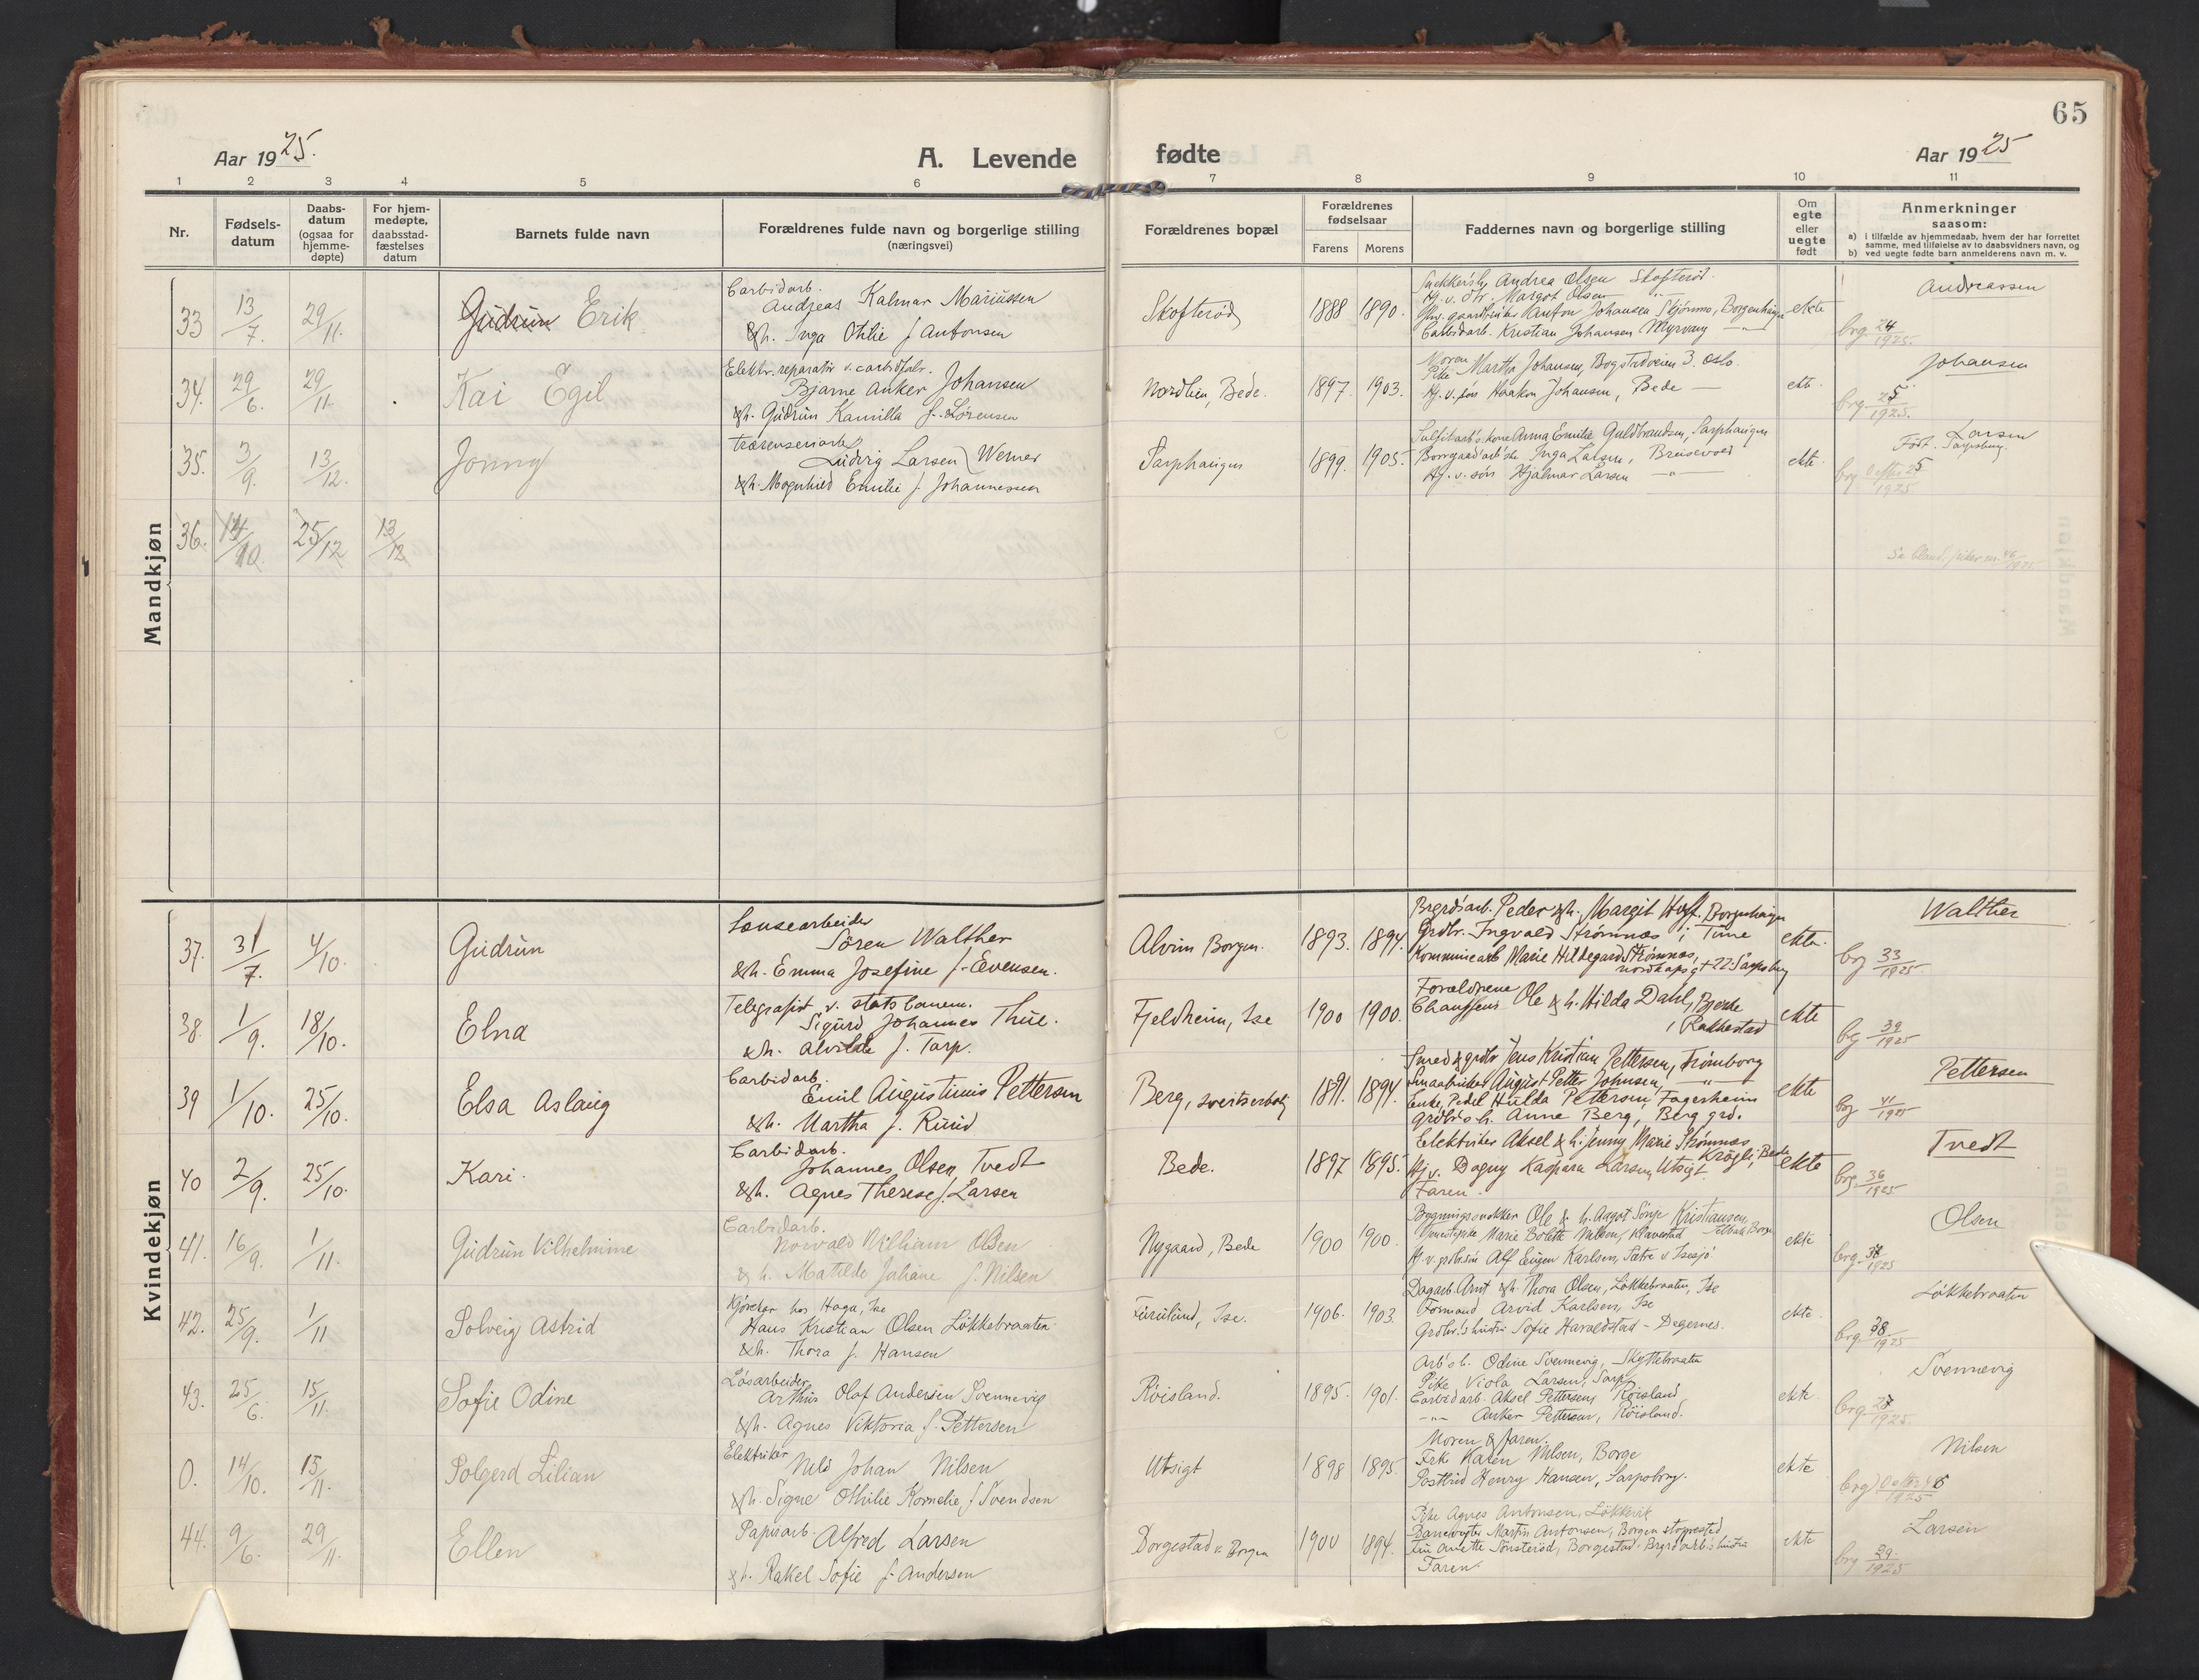 65
Aar 1925.
A. Levende fødte
Aar 1925
1 2 3 4 5 6 7 8 9 10 11
Nr.
Fødsels-
datum
Daabs-
datum
(ogsaa for
hjemme-
døpte)
For hjem-
medøpte,
daabsstad-
fæstelses
datum
Barnets fulde navn
Forældrenes fulde navn og borgerlige stilling
(næringsvei)
Forældrenes bopæl
Forældrenes
fødselsaar
Farens Morens
Faddernes navn og borgerlige stilling
Om
egte
eller
uegte
født
Anmerkninger
saasom:
a) i tilfælde av hjemmedaab, hvem der har forrettet
samme, med tilføielse av to daabsvidners navn, og
b) ved uegte fødte barn anmelderens navn m. v.
Mandkjøn
33 13/7. 29/11. Gudrun Erik
Carbidarb.
Andreas Kalmar Mariussen
&h. Inga Othilie f. Antonsen
Skofterød 1888 1890.
Andrea Olsen Skofterød.
Hj. v. dtr. Margot Olsen
Anton Johansen Skjönnes, Borgenhaugen
Carbidarb. Kristian Johansen Myrvang
ekte
Andreassen
brg. 24/1925.
34. 29/6. 29/11. Kai Egil
Elektr. reparatör v. carbidfabr.
Bjarne Anker Johansen
&h. Gudrun Kamilla f. Sörensen
Nordlien, Bede. 1897. 1903.
Moren
Pike Martha Johansen, Bogstadveien 3. Oslo.
Hj. v. sön Haakon Johansen, Bede
ekte.
Johansen
brg. 25/1925.
35. 3/9. 13/12. Jonny
Ludvig Larsen Werner
&h. Magnhild Emilie f. Johannessen
Sarphaugen 1899. 1905.
Sulfitarb's. kone Anna Emilie Guldbrandsen, Sarphaugen
Borregaard arb'ske Inga Larsen,
Hj. v. sön Hjalmar Larsen
ekte.
Larsen
Föd. Sarpsborg.
1925
36. 14/10. 25/12 13/12
Se bland piker nr. 46/1925
Kvindekjøn
37. 31/7. 4/10. Gudrun
Lensearbeider
Sören Walther
&h. Emma Josefine f. Evensen.
Alvim Borgen. 1893. 1894.
Brgrds'arb. Peder &h. Margit Hoff. Borgenhaugen
Grdbr. Ingvald Strömnæs i Tune
Kommunearb Marie Hildegard Strömnæs,
nordkapsgt 22. Sarpsborg
ekte.
Walther
brg 33/1925.
38. 1/9. 18/10. Elna
Telegrafist v. statsbanen.
Sigurd Johannes Thue.
&h. Alvilde f. Tarp.
Fjeldheim, Ise 1900 1900.
Forældrene
Chauffeur Ole & h. Hilda Dahl, Bjerke
i Rakkestad
ekte
brg 39/1925
39 1/10. 25/10. Elsa Aslaug
Carbidarb.
Emil Augustinus Pettersen
&h. Martha f. Ruud
Berg, 1891. 1894.
Smed & grdbr Jens Kristian Pettersen, Trömborg
Smaabruker August Petter Johnsen,
Enke, Pedel Hulda Pettersen, Fagerheim
Grdbr's h. Anne Berg, Berg grd.
ekte
Pettersen
brg 41/1925
40 2/9. 25/10. Kari.
Carbidarb.
Johannes Olsen Tvedt
&h. Agnes Therese f. Larsen
Bede. 1897 1895.
Elektriker Aksel & h. Jenny Marie Strömnæs
Krögli, Bede
Hj. v. Dagny Kaspara Larsen, Utsigt.
Faren.
ekte
Tvedt
brg. 36/1925
41. 16/9. 1/11. Gudrun Vilhelmine
Carbidarb.
Norvald William Olsen
& h. Matilde Juliane f. Nilsen
Nygaard, Bede 1900 1900.
Bygningssnekker Ole & h. Aagot Sönje Kristiansen,
Marie Bolette Nilsen,
H. v. grdbr.sön Alf Eugen Karlsen, Sætre v Isesjö
ekte
Olsen
brg. 38/1925
42. 25/9. 1/11 Solveig Astrid
Kjörekar hos Haga, Ise
Hans Kristian Olsen Lökkebraaten
&h. Thora f. Hansen
Furulund, Ise. 1906. 1903.
Dagarb. Arnt &h. Thora Olsen, Lökkebraaten, Ise
Formand Arvid Karlsen, Ise
Grdbr.'s hustru Sofie Haraldstad - Degernes.
ekte.
Lökkebraaten
brg. 38/1925
43. 25/6. 15/11. Sofie Odine
Lösarbeider
Arthur Olaf Andersen Svennevig
&h. Agnes Viktoria f. Pettersen
Röisland. 1895. 1901.
Arb's h. Odine Svennevig, Skyttebraaten
Pike Viola Larsen, Sarp
Carbidarb. Aksel Pettersen, Röisland
Anker Pettersen, Röisland.
ekte.
Svennevig
brg 27/1925.
0. 14/10. 15/11. Solgerd Lilian
Elektriker
Nils Johan Nilsen
&h. Signe Othilie Kornelie f. Svendsen
Utsigt 1898 1895
Moren & faren.
Frk Karen Nilsen, Borge
Postbud Henry Hansen, Sarpsborg.
ekte
Nilsen
1925
44. 9/6. 29/11. Ellen
Papirarb. Alfred Larsen
&h. Rakel Sofie f. Andersen
Borgestad v. Borgen 1900 1894.
Pike Agnes Antonsen, Lökkevik
Banevogter Martin Antonsen, Borgen stoppested
Anette Sönsteröd, Borgestad. Brgrd arb's hustru
Faren.
ekte
Larsen
brg 29/1925